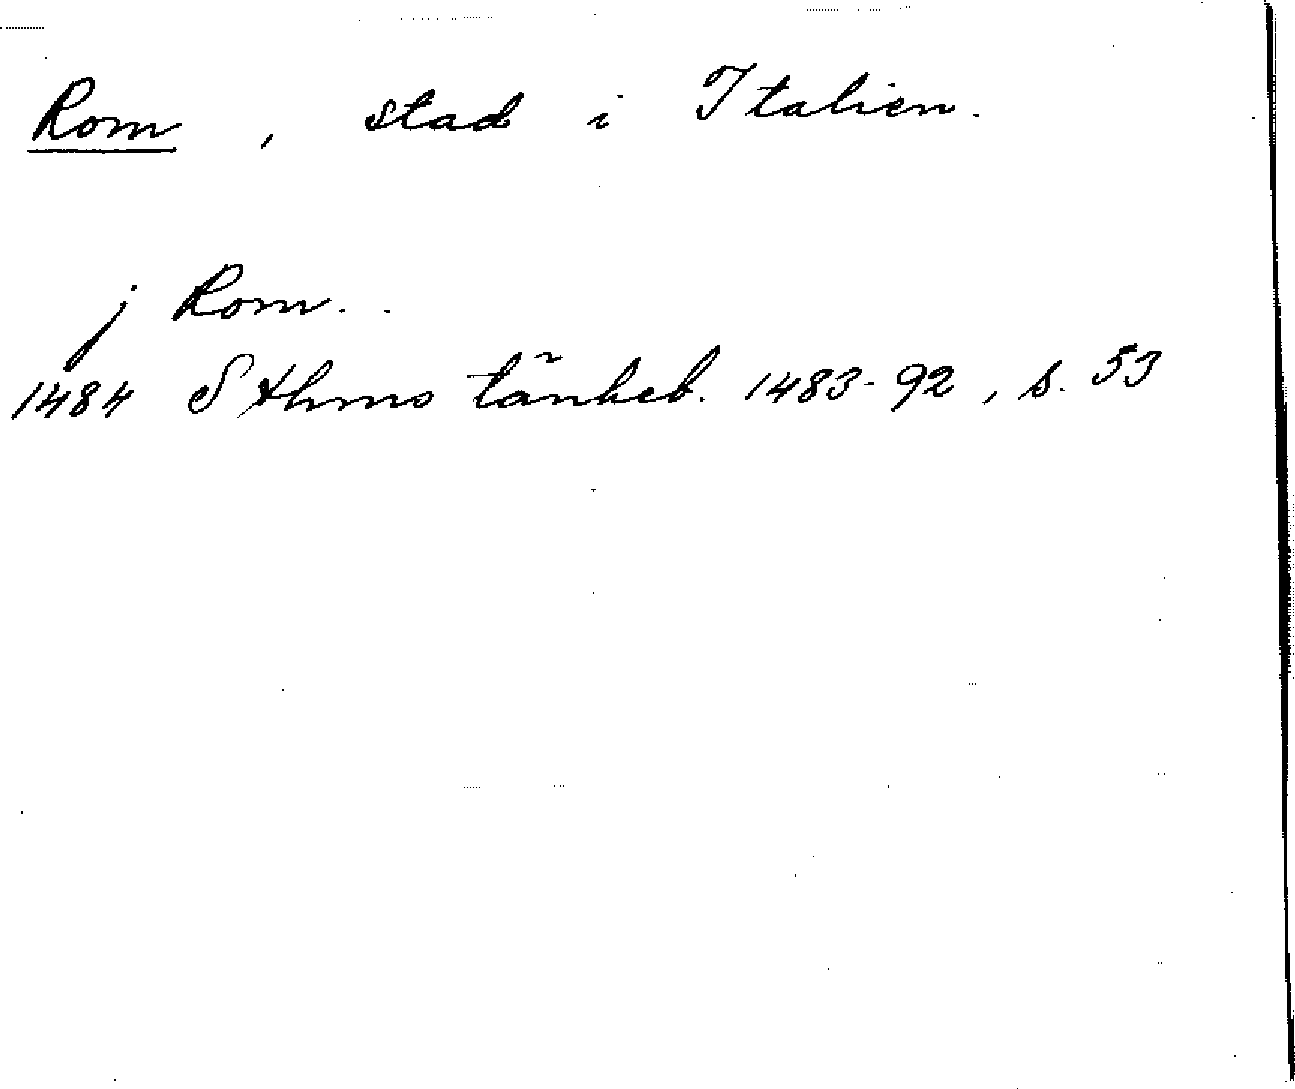 Rom, stad i Italien.
j Rom. .
1484 Sthms tänkeb. 1483-92, s. 53